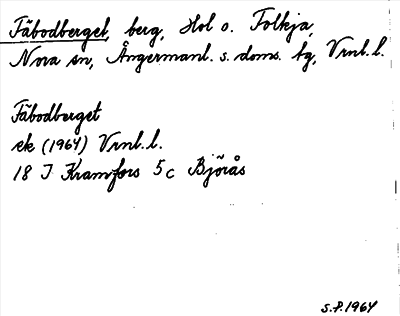 Fäbodberget, berg, Hol o. Folkja,
Nora sn, Ångermanl. s. doms. tg, Vrnl. l.
Fäbodberget
ek (1964) Vrnl. l.
18 I Kramfors 5c Björås
S.P. 1964